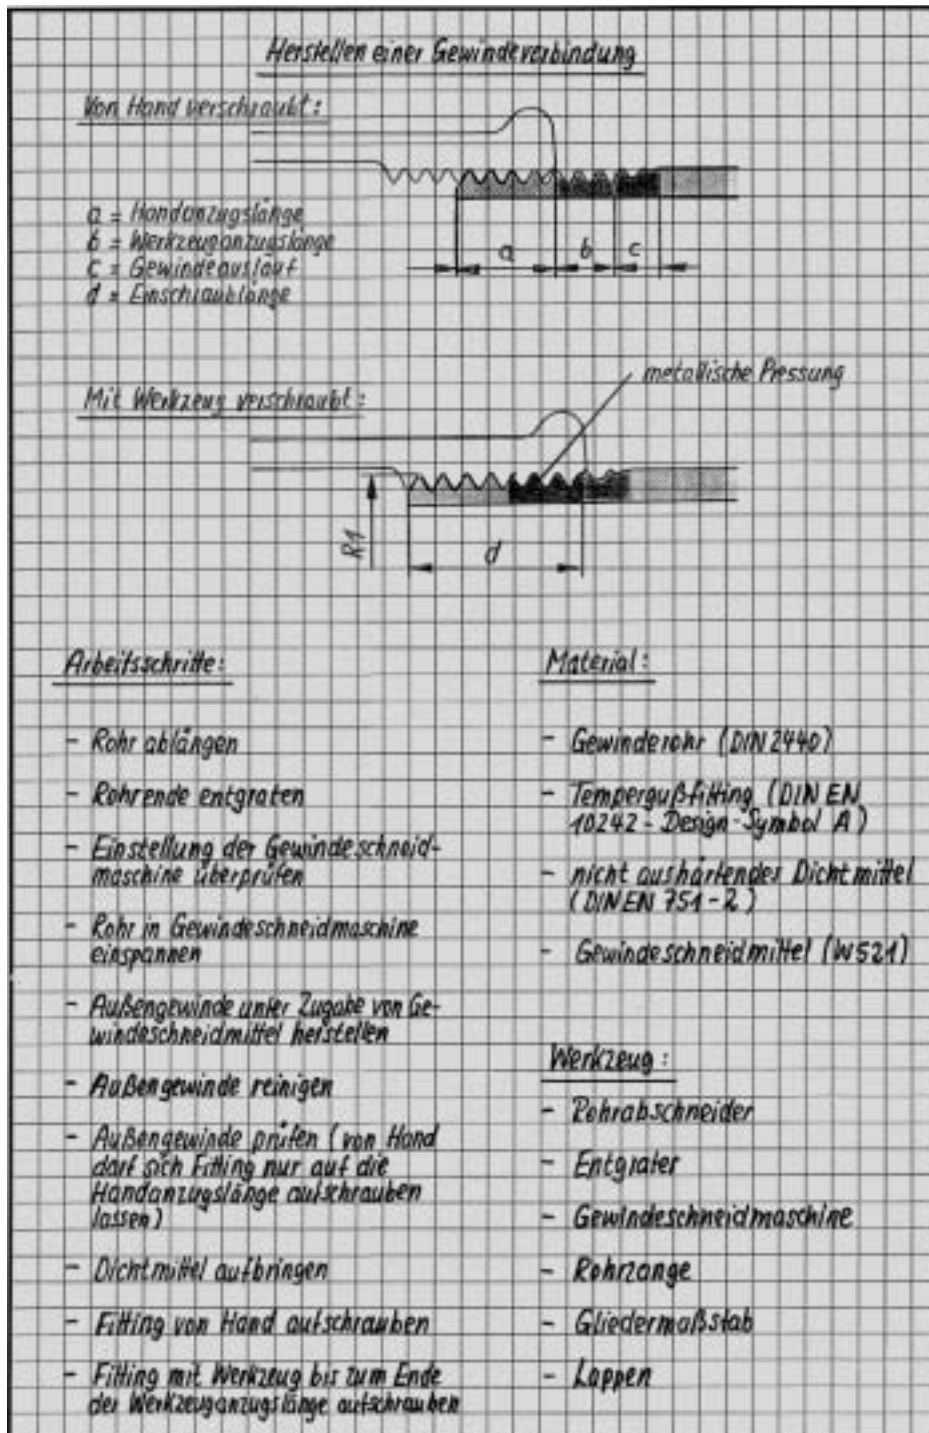 Herstellen einer Gewindeverbindung
Von Hand verschraubt:
a = Handanzugslänge
b = Werkzeuganzugslänge
c = Gewindeauslauf
d = Einschraublänge
a b c
metallische Pressung
Mit Werkzeug verschraubt:
R1
d
Arbeitsschritte:
- Rohr ablängen
- Rohrende entgraten
- Einstellung der Gewindeschneid-
maschine überprüfen
- Rohr in Gewindeschneidmaschine
einspannen
- Außengewinde unter Zugabe von Ge-
windeschneidmittel herstellen
- Außengewinde reinigen
- Außengewinde prüfen (von Hand
darf sich Fitting nur auf die
Handanzugslänge aufschrauben
lassen)
- Dichtmittel aufbringen
- Fitting von Hand aufschrauben
- Fitting mit Werkzeug bis zum Ende
der Werkzeuganzugslänge aufschrauben
Material:
- Gewinderohr (DIN 2440)
- Tempergußfitting (DIN EN
10242 - Design-Symbol A)
- nicht aushärtendes Dichtmittel
(DIN EN 751-2)
- Gewindeschneidmittel (W521)
Werkzeug:
- Rohrabschneider
- Entgrater
- Gewindeschneidmaschine
- Rohrzange
- Gliedermaßstab
- Lappen